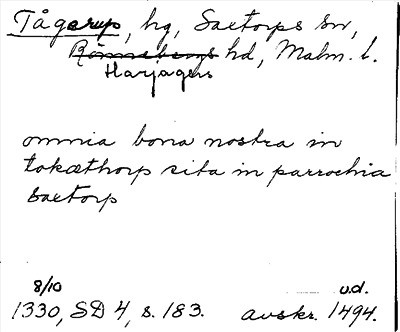 Tågerup, hg, Saxtorps sn,
Rönnebergs hd, Malm. l.
Harjagers
omnia bona nostra in
tokæthorp sita in parrochia
saxtorp
8/10 u.d.
1330, SD 4, s. 183. avskr. 1494.